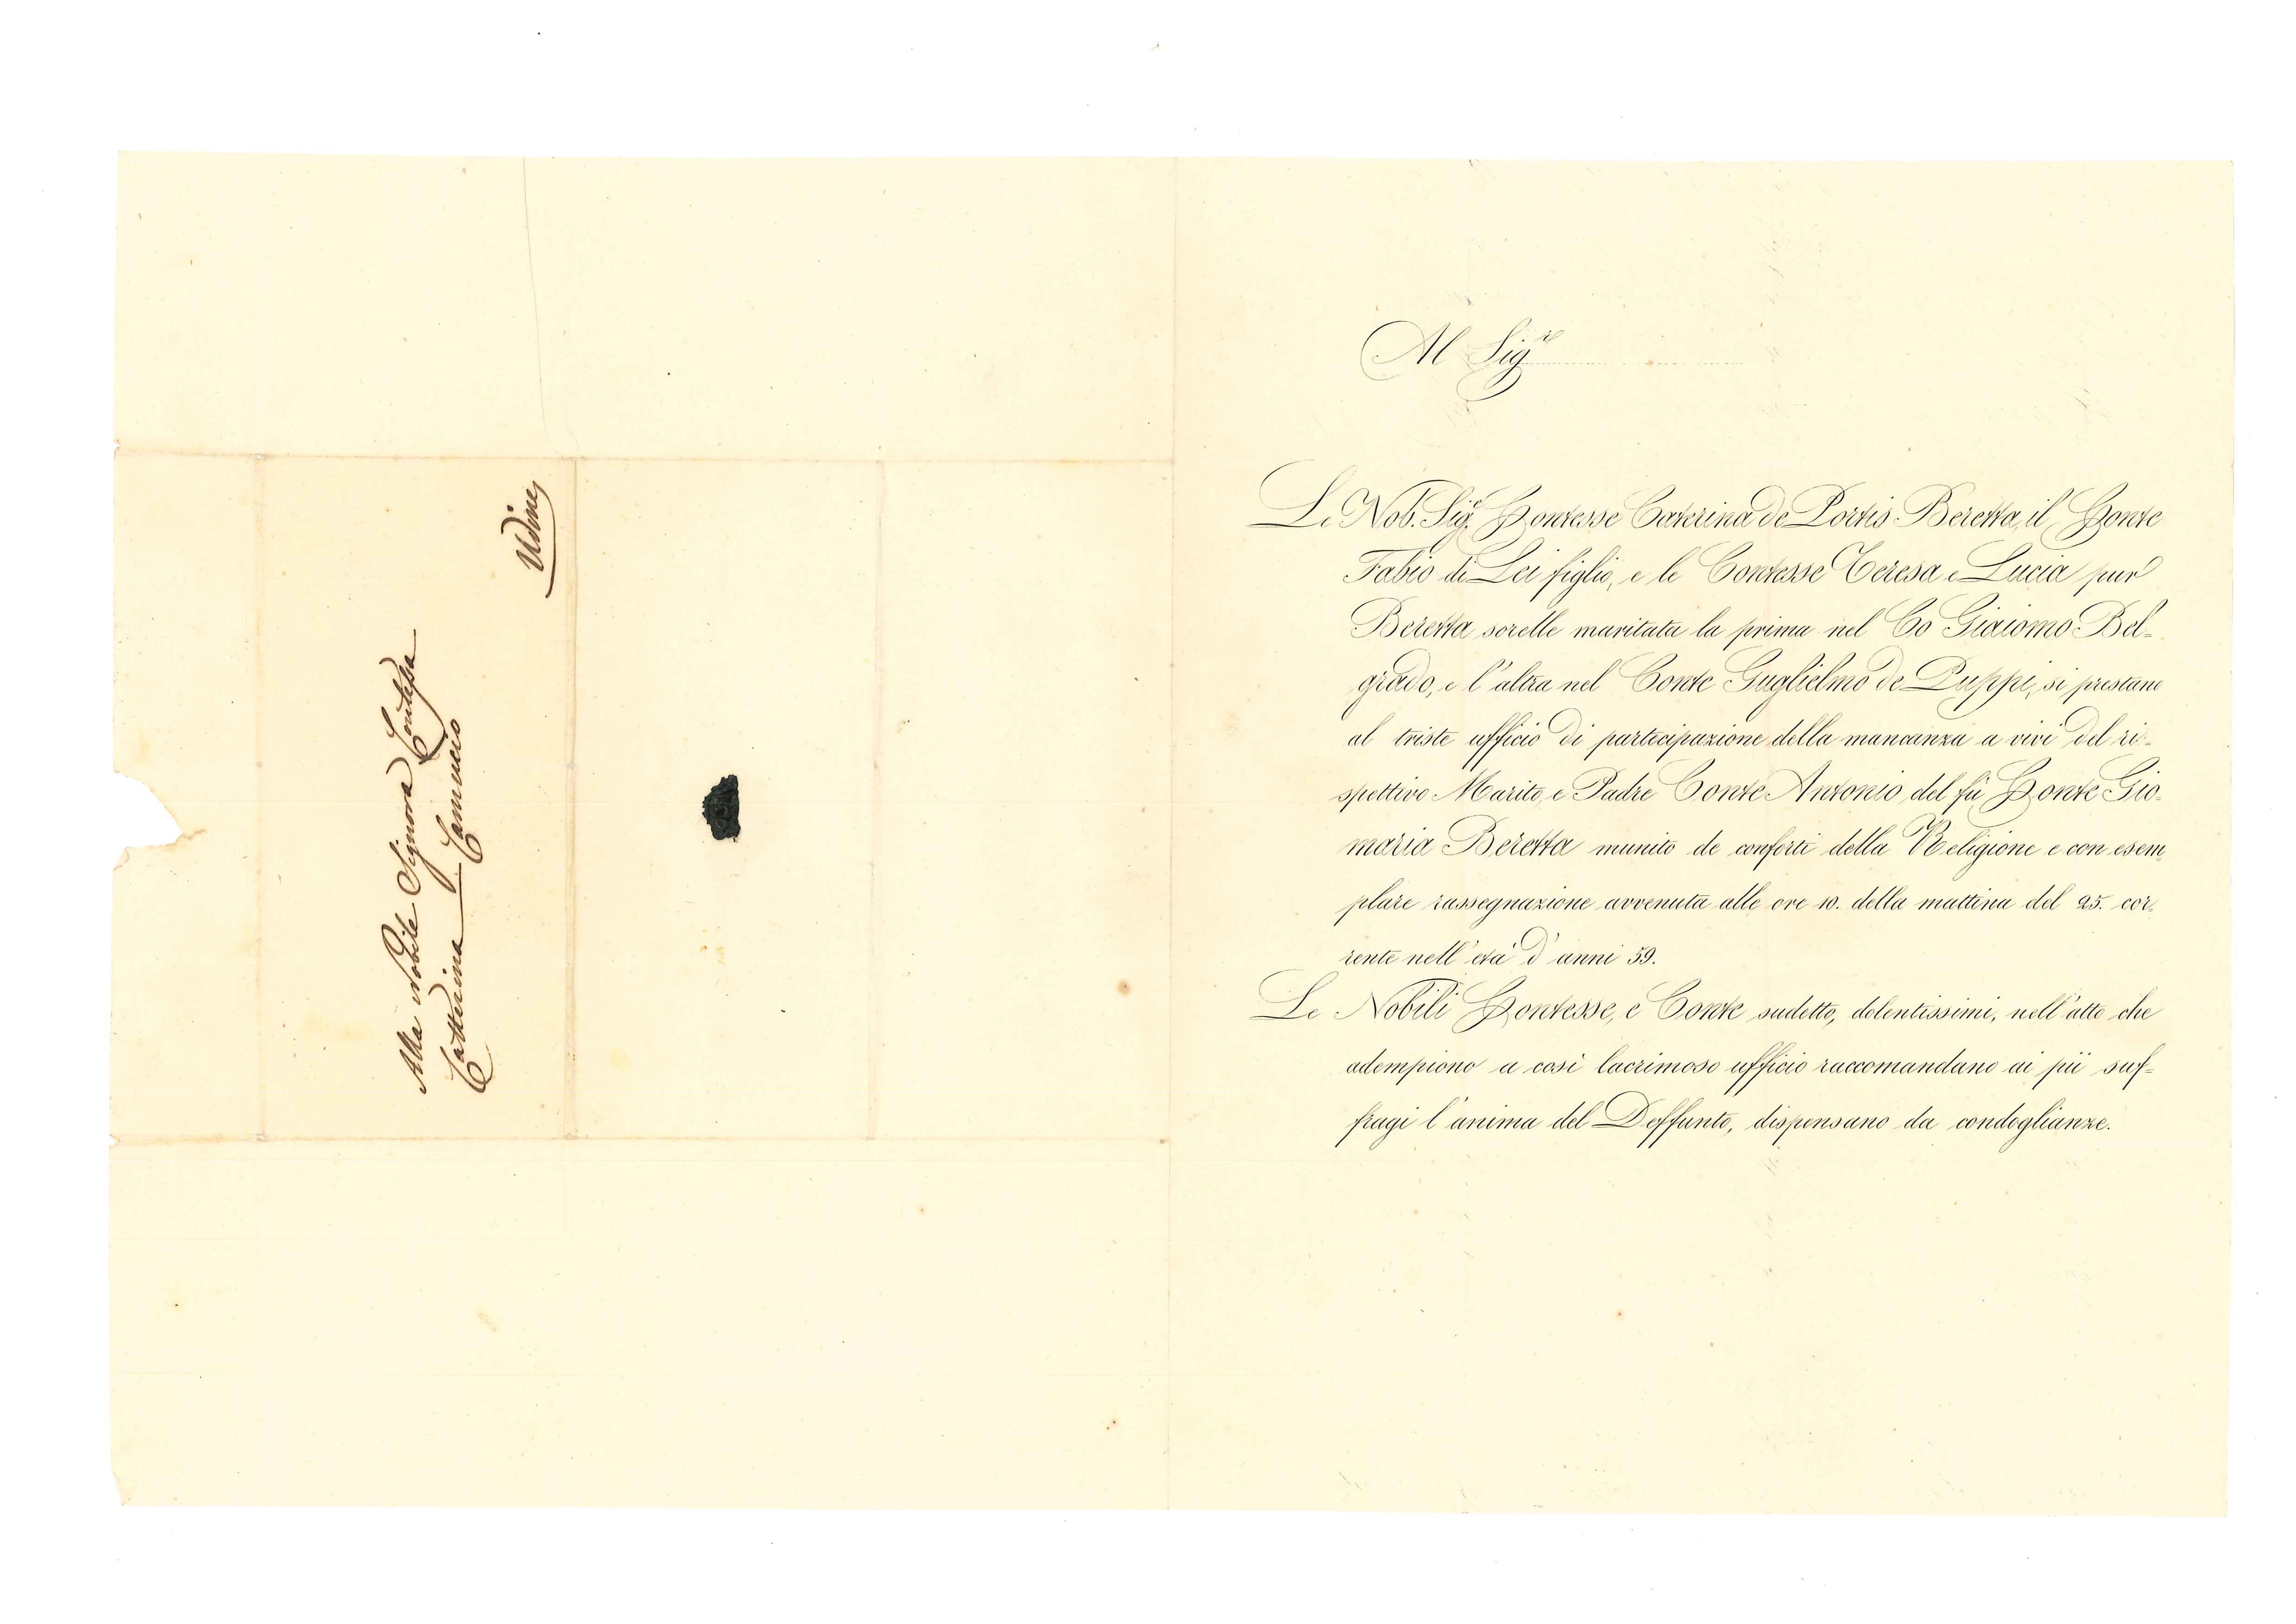 Alla Nobile Signora Contessa
Catterina Camucio
Udine
Al Sig.r
Le Nob. Sig.e Contesse Caterina de Portis Beretta, il Conte
Fabio di Lei figlio, e le Contesse Teresa e Lucia pur
Beretta sorelle maritata la prima nel Co Giacomo Bel=
grado, e l'altra nel Conte Guglielmo de Puppi, si prestano
al triste ufficio di partecipazione della mancanza a vivi del ri=
spettivo Marito, e Padre Conte Antonio del fù Conte Gio=
maria Beretta munito de conforti della Religione e con esem=
plare rassegnazione avvenuta alle ore 10. della mattina del 25. cor=
rente nell'età d'anni 59.
Le Nobili Contesse, e Conte sudetto, dolentissimi, nell'atto che
adempiono a così lacrimoso ufficio raccomandano ai pii suf=
fragi l'anima del Deffunto, dispensano da condoglianze.